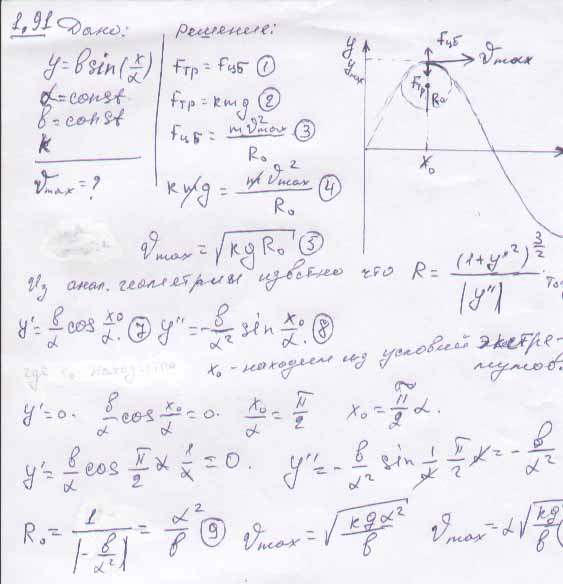 1,91 Дано: Решение:
y = b sin(x/α) Fтр = Fцб ①
α = const Fтр = kmg ②
b = const Fцб = mϑ²max / R₀ ③
k
ϑmax = ? kmg = mϑ²max / R₀ ④
y ymax Fцб ϑmax Fтр R₀ x₀
ϑmax = √(kgR₀) ⑤
Из анал. геометрии известно что R = (1+y'²)^(3/2) / |y''|
y' = b/α cos x₀/α. ⑦ y'' = -b/α² sin x₀/α. ⑧
x₀ - находим из условий экстре-
мумов.
y' = 0. b/α cos x₀/α = 0. x₀/α = π/2 x₀ = π/2 α.
y' = b/α cos π/2 α 1/α = 0. y'' = -b/α² sin 1/α π/2 α = -b/α²
R₀ = 1/|-b/α²| = α²/b ⑨ ϑmax = √(kgα²/b) ϑmax = α√(kg/b)